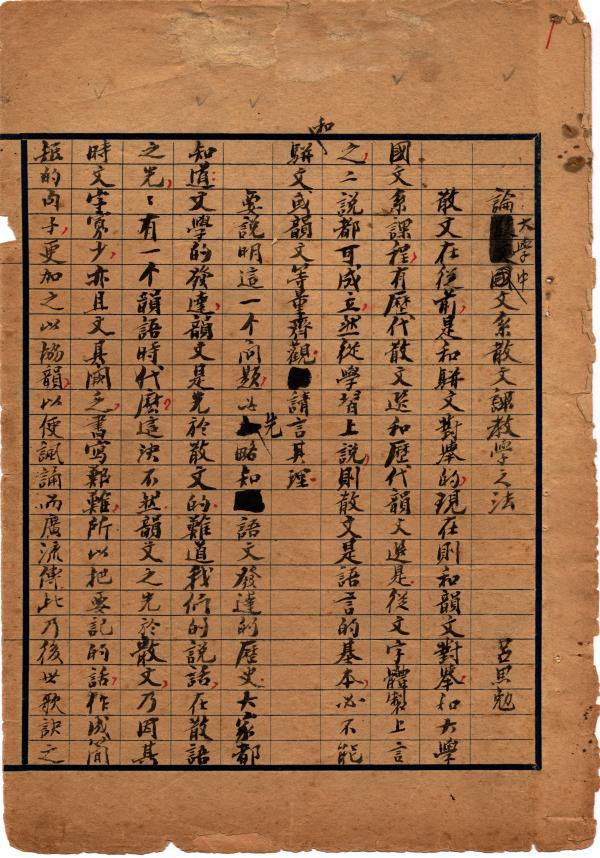 論大學中國文系散文課教學之法 呂思勉
散文在從前,是和駢文對舉的,現在則和韻文對舉.如大學
國文系課程,有歷代散文選和歷代韻文選是.從文字體製上言
之,二說都可成立,然從學習上說,則散文是語言的基本,必不能
和駢文或韻文等量齊觀.請言其理.
要說明這一个問題,必先略知語文發達的歷史.大家都
知道:文學的發達,韻文是先於散文的.難道我們的說話,在散語
之先,有一个韻語時代麽?這決不然.韻文之先於散文,乃因其
時文字寡少,亦且文具闕乏,書寫艱難,所以把要記的話,作成簡
短的句子,更加之以協韻,以便諷誦而廣流傳.此乃後世歌訣之